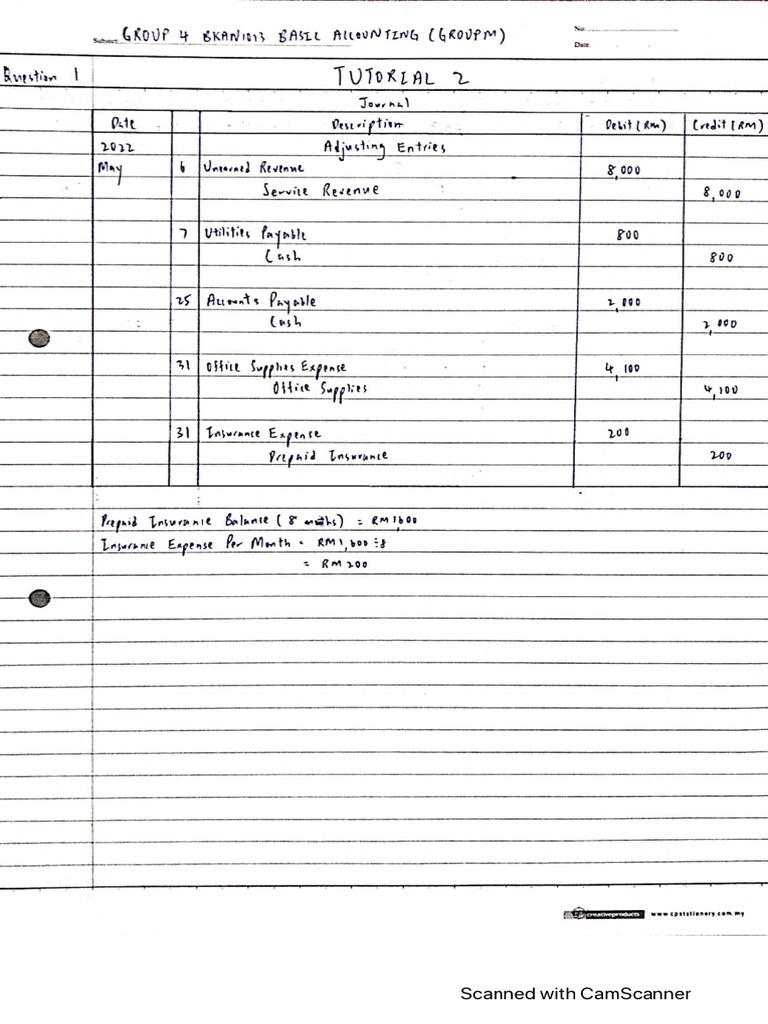 Subject GROUP 4 BKAN1013 BASIC ACCOUNTING (GROUP M)
No.
Date:
Question 1 TUTORIAL 2
Journal
Date Description Debit (RM) Credit (RM)
2022 Adjusting Entries
May 6 Unearned Revenue 8,000
Service Revenue 8,000
7 Utilities Payable 800
Cash 800
25 Accounts Payable 2,000
Cash 2,000
31 Office Supplies Expense 4,100
Office Supplies 4,100
31 Insurance Expense 200
Prepaid Insurance 200
Prepaid Insurance Balance (8 months) = RM1600
Insurance Expense Per Month = RM1,600 ÷8
= RM200
creativeproducts www.cpstationery.com.my
Scanned with CamScanner